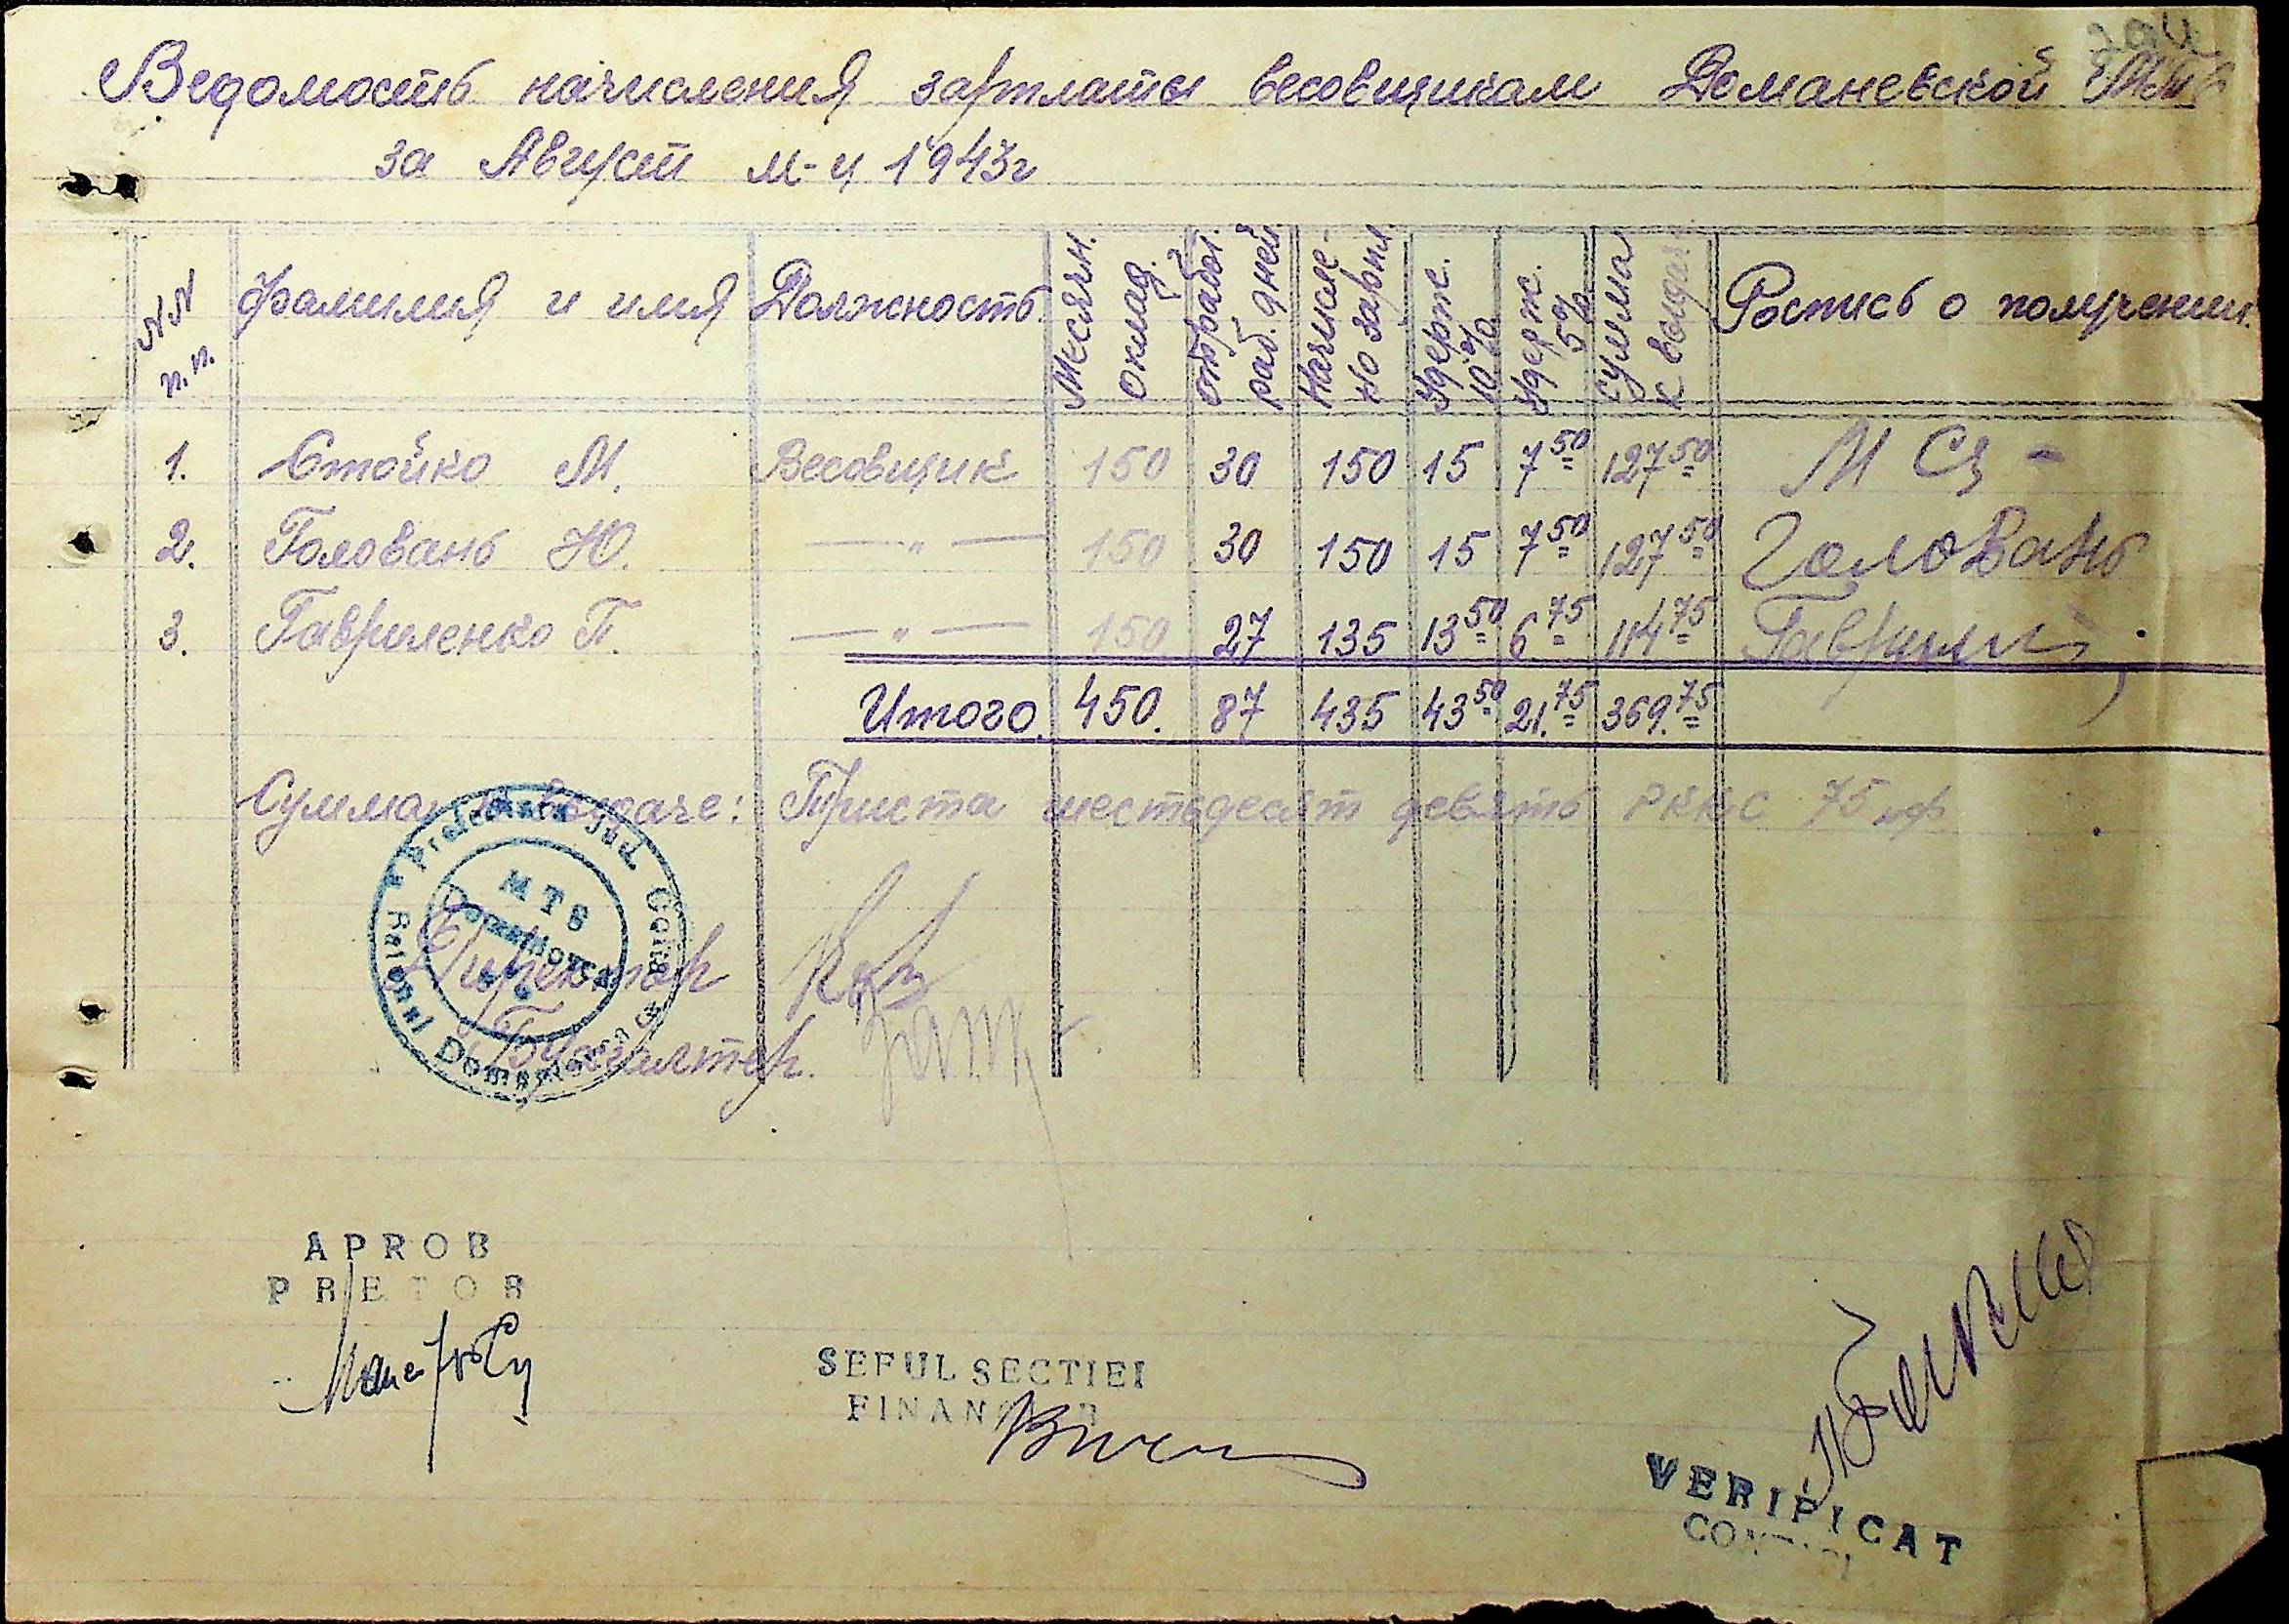 Ведомость начисления зарплаты весовщикам Доманевской МТС
за Август м-ц 1943г
№№ п.п. Фамилия и имя Должность Месячн. оклад. отработ. раб. дней Начисле-но зарпл. Удерж. 10% Удерж. 5% Сумма к выдач. Роспись о получении.
1. Стойко М. Весовщик 150 30 150 15 7 50 127 50
2. Головань Ю. —„— 150 30 150 15 7 50 127 50 Головань
3. Гавриленко П. —„— 150 27 135 13 50 6 75 114 75
Итого. 450. 87 435 43 50 21. 75 369. 75
Сумма к выдаче: Триста шестьдесят девять РККС 75 пф
MTS
Директор
Бухгалтер.
APROB
PRETOR
SEFUL SECTIEI
FINANCIAR
VERIFICAT